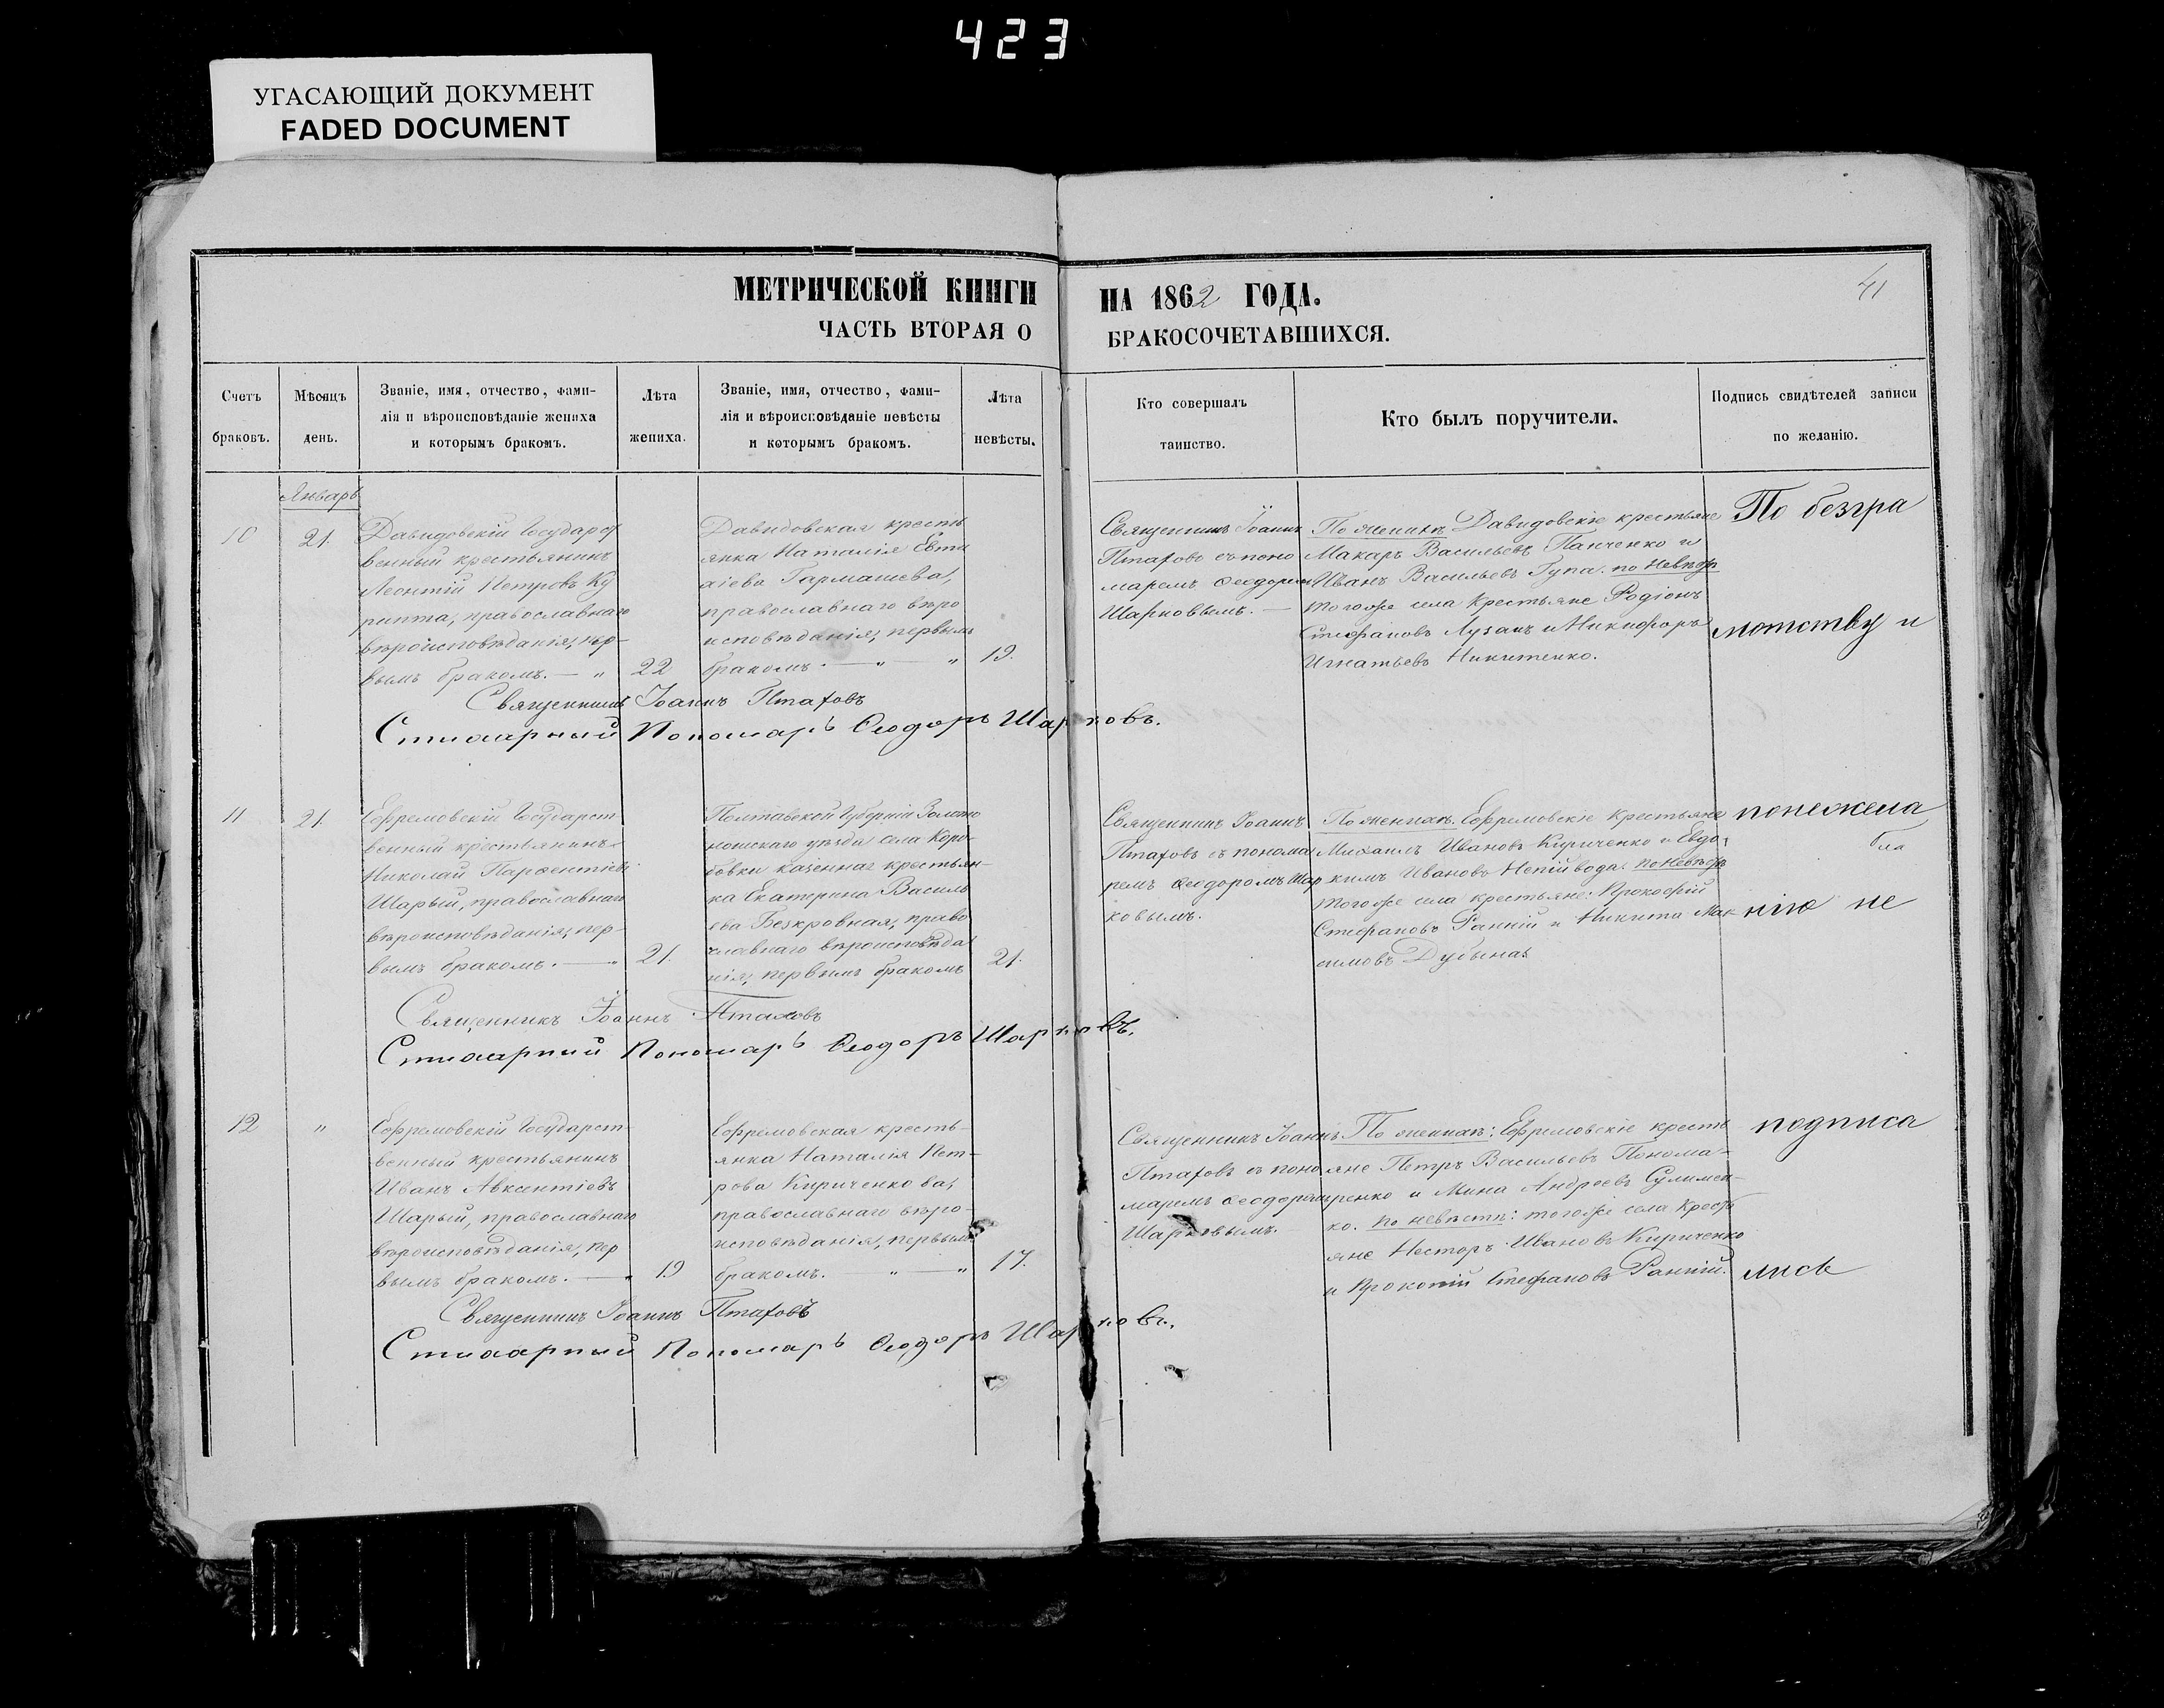 423
УГАСАЮЩИЙ ДОКУМЕНТ
FADED DOCUMENT
МЕТРИЧЕСКОЙ КНИГИ НА 1862 ГОДА.
41
ЧАСТЬ ВТОРАЯ О БРАКОСОЧЕТАВШИХСЯ.
Счетъ
браковъ.
Мѣсяцъ
день.
Званіе, имя, отчество, фами-
лія и вѣроисповѣданіе жениха
и которымъ бракомъ.
Лѣта
жениха.
Званіе, имя, отчество, фами-
лія и вѣроисповѣданіе невѣсты
и которымъ бракомъ.
Лѣта
невѣсты.
Кто совершалъ
таинство.
Кто былъ поручители.
Подпись свидѣтелей записи
по желанію.
Январь
10
21.
Давидовскій Государст
венный крестьянинъ
Леонтій Петровъ Ку
рипта, православнаго
вѣроисповѣданія, пер-
вымъ бракомъ. — „
22
Давидовская кресть
янка Наталія Евти
хіева Гармашева,
православнаго вѣро
исповѣданія, первымъ
бракомъ. — „ — „
19.
Священникъ Іоаннъ
Птаховъ съ поно
маремъ Ѳеодоромъ
Шарковымъ. —
По женихѣ Давидовскіе крестьяне
Макаръ Васильевъ Панченко и
Иванъ Васильевъ Гупа. по невѣстѣ
тогоже села крестьяне Родіонъ
Стефановъ Лузанъ и Никифоръ
Игнатьевъ Никитенко.
По безгра
мотству и
Священникъ Іоаннъ Птаховъ
Стихарный Пономарь Ѳеодоръ Шарковъ.
11
21.
Ефремовскій Государст
венный крестьянинъ
Николай Парфентіевъ
Шарый, православнаго
вѣроисповѣданія, пер-
вымъ бракомъ. — „
21.
Полтавской Губерніи Золото
ношскаго уѣзда села Коро-
бовки казенная крестьян-
ка Екатерина Василь
ева Безкровная, право
славнаго вѣроисповѣда
нія, первымъ бракомъ
21.
Священникъ Іоаннъ
Птаховъ съ понома
ремъ Ѳеодоромъ Шар
ковымъ.
По женихѣ. Ефремовскіе крестьяне
Михаилъ Ивановъ Кириченко и Евдо,
кимъ Ивановъ Непійвода. по невѣстѣ
тогоже села крестьяне: Прокофій
Стефановъ Ранній и Никита Мак-
симовъ Дубына
понежела
нію не
Священникъ Іоаннъ Птаховъ
Стихарный Пономарь Ѳеодоръ Шарковъ.
12
„
Ефремовскій Государст-
венный крестьянинъ
Иванъ Авксентіевъ
Шарый, православнаго
вѣроисповѣданія, пер
вымъ бракомъ. — „
19
Ефремовская кресть-
янка Наталія Пет-
рова Кириченкова,
православнаго вѣро-
исповѣданія, первымъ
бракомъ. „ — „
17.
Священникъ Іоаннъ
Птаховъ съ поно
маремъ Ѳеодоромъ
Шарковымъ.
По женихѣ: Ефремовскіе кресть
яне Петръ Васильевъ Понома-
ренко и Мина Андреевъ Сулимен-
ко. по невѣстѣ: тогоже села Кресть
яне Несторъ Ивановъ Кириченко
и Прокопій Стефановъ Ранній.
подписа
лись
Священникъ Іоаннъ Птаховъ
Стихарный Пономарь Ѳеодоръ Шарковъ.